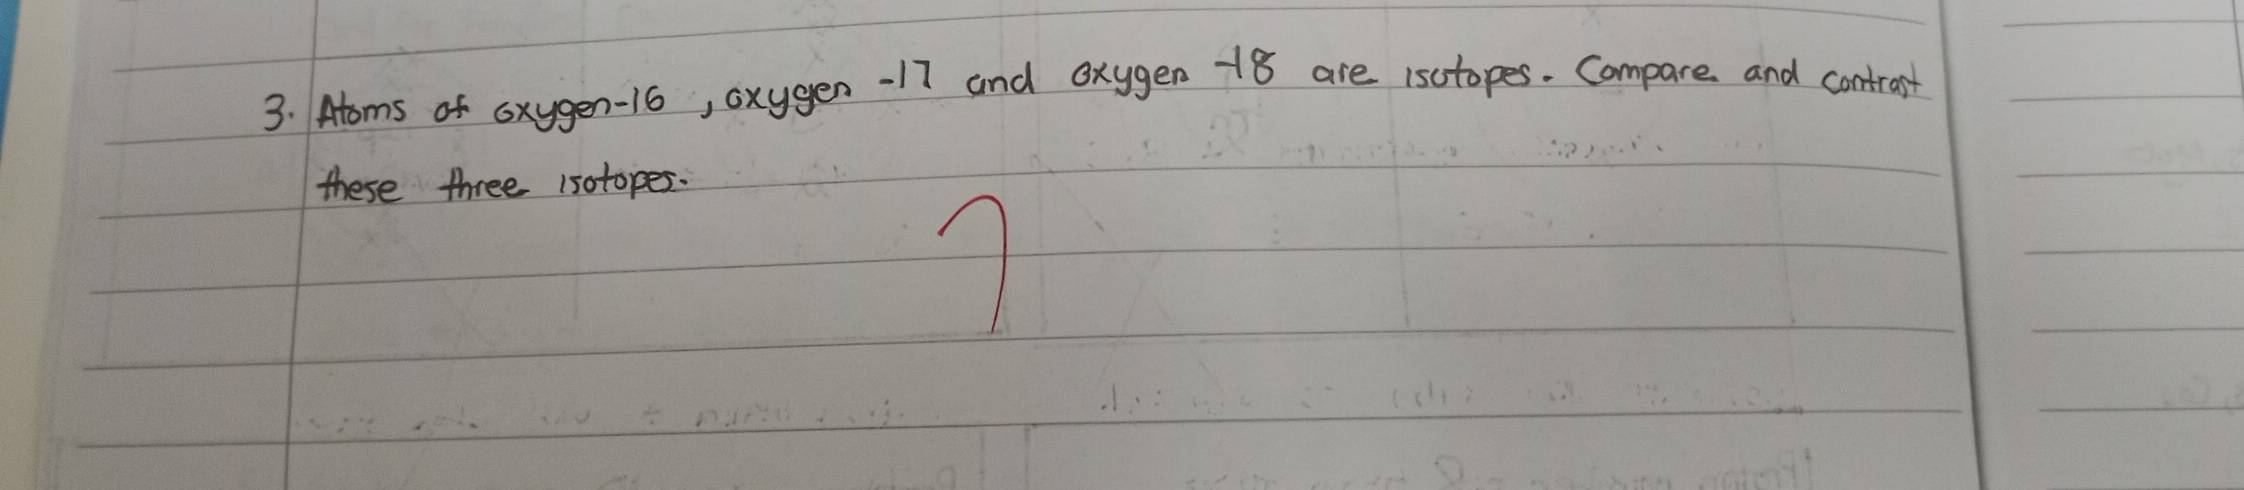 3. Atoms of oxygen-16, oxygen -17 and oxygen -18 are isotopes. Compare and contrast
these three isotopes.